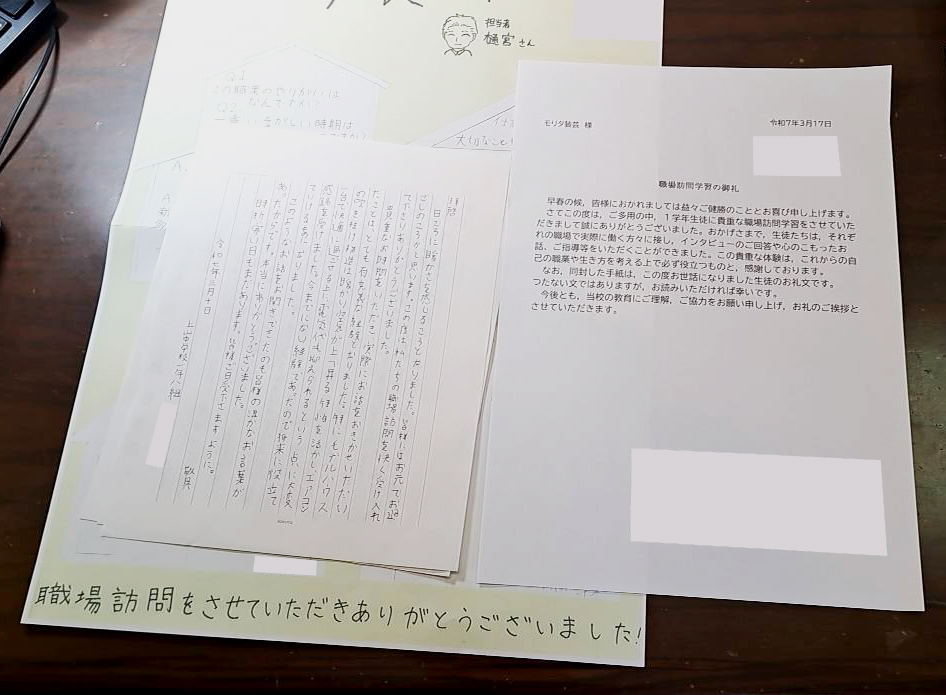 担当者
樋宮さん
Q1
この職業のやりがいは
なんですか?
Q2
一番いそがしい時期は
大切なこと
モリタ装芸 様
令和7年3月17日
職場訪問学習の御礼
早春の候，皆様におかれましては益々ご健勝のこととお喜び申し上げます。
さてこの度は、ご多用の中、1学年生徒に貴重な職場訪問学習をさせていた
だきまして誠にありがとうございました。おかげさまで、生徒たちは、それぞ
れの職場で実際に働く方々に接し、インタビューのご回答や心のこもったお
話、ご指導等をいただくことができました。この貴重な体験は、これからの自
己の職業や生き方を考える上で必ず役立つものと、感謝しております。
なお、同封した手紙は、この度お世話になりました生徒のお礼文です。
つたない文ではありますが、お読みいただければ幸いです。
今後とも、当校の教育にご理解、ご協力をお願い申し上げ，お礼のご挨拶と
させていただきます。
拝啓
日ごとに暖かさを感じるころとなりました。皆様にはお元気でお過
ごしのことと思います。この度は私たちの職場訪問を快く受け入れ
てくださりありがとうございました。
貴重なお時間をいただき、実際にお話をおきかせいただい
たことは、とても有意義な経験となりました。特にモデルハウス
の吹き抜け構造は暖かい空気が上へ昇る特性を活かし、エアコン
一台で快適に過ごせる上に電気代も抑えられるという点に大変
感銘を受けました。今までにない経験であったので将来に役立て
ていけるようにしました。
このようなお話をお聞きできたのも皆様の温かなお言葉が
あったからです。本当にありがとうございました。
まだ寒い日もあります。皆様ご自愛くださいますように。
敬具
令和七年三月十日
上山中学校一年八組
職場訪問をさせていただきありがとうございました!